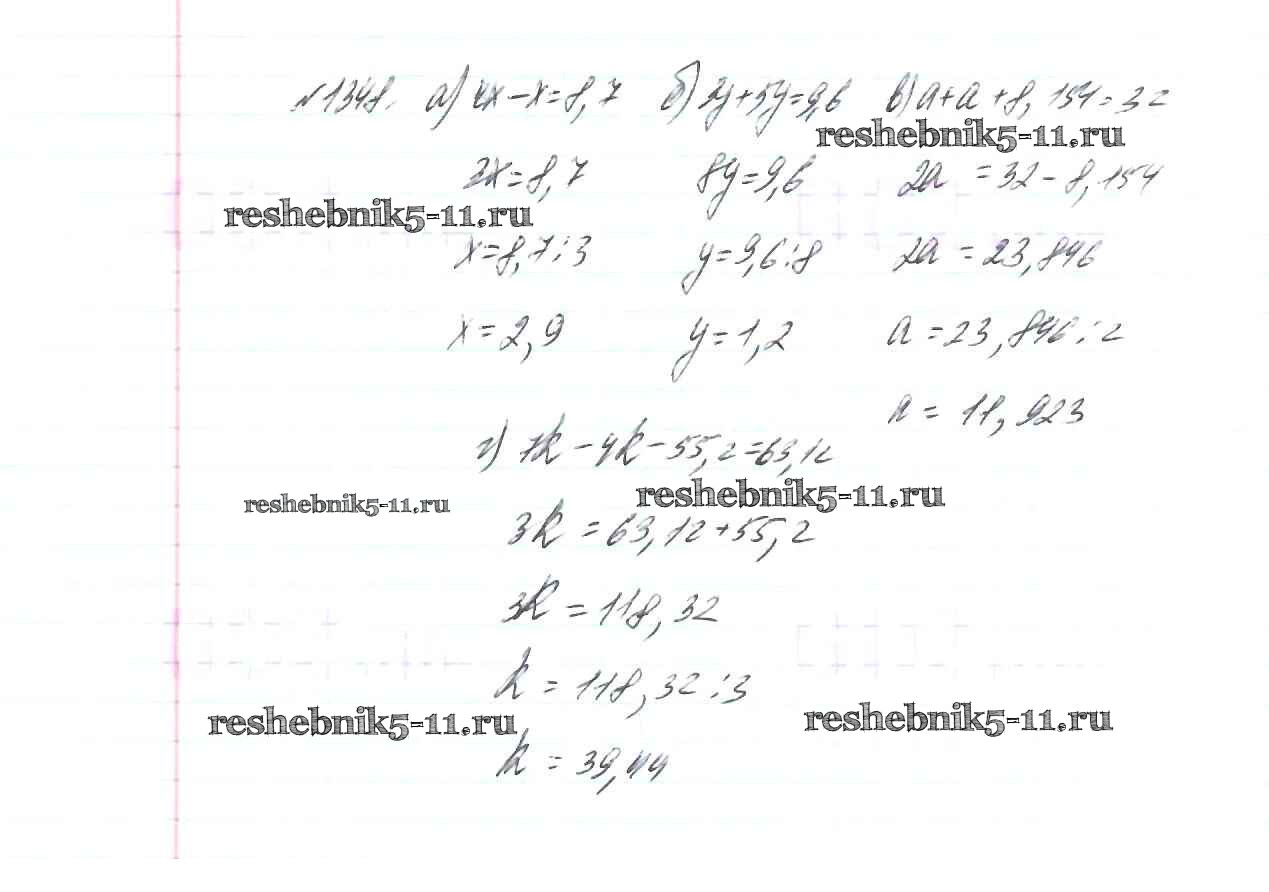 №1348. а) 4x-x=8,7 б) 3y+5y=9,6 в) a+a+8,154=32
reshebnik5-11.ru
3x=8,7 8y=9,6 2a =32-8,154
reshebnik5-11.ru
x=8,7:3 y=9,6:8 2a =23,846
x=2,9 y=1,2 a =23,846:2
a = 11,923
г) 7k-4k-55,2=63,12
reshebnik5-11.ru reshebnik5-11.ru
3k =63,12+55,2
3k =118,32
k =118,32:3
reshebnik5-11.ru reshebnik5-11.ru
k = 39,44